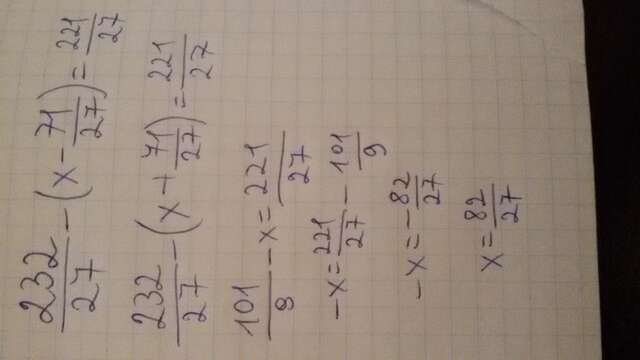 232/27 - (x - 71/27) = 221/27
232/27 - (x + 71/27) = 221/27
101/9 - x = 221/27
-x = 221/27 - 101/9
-x = -82/27
x = 82/27